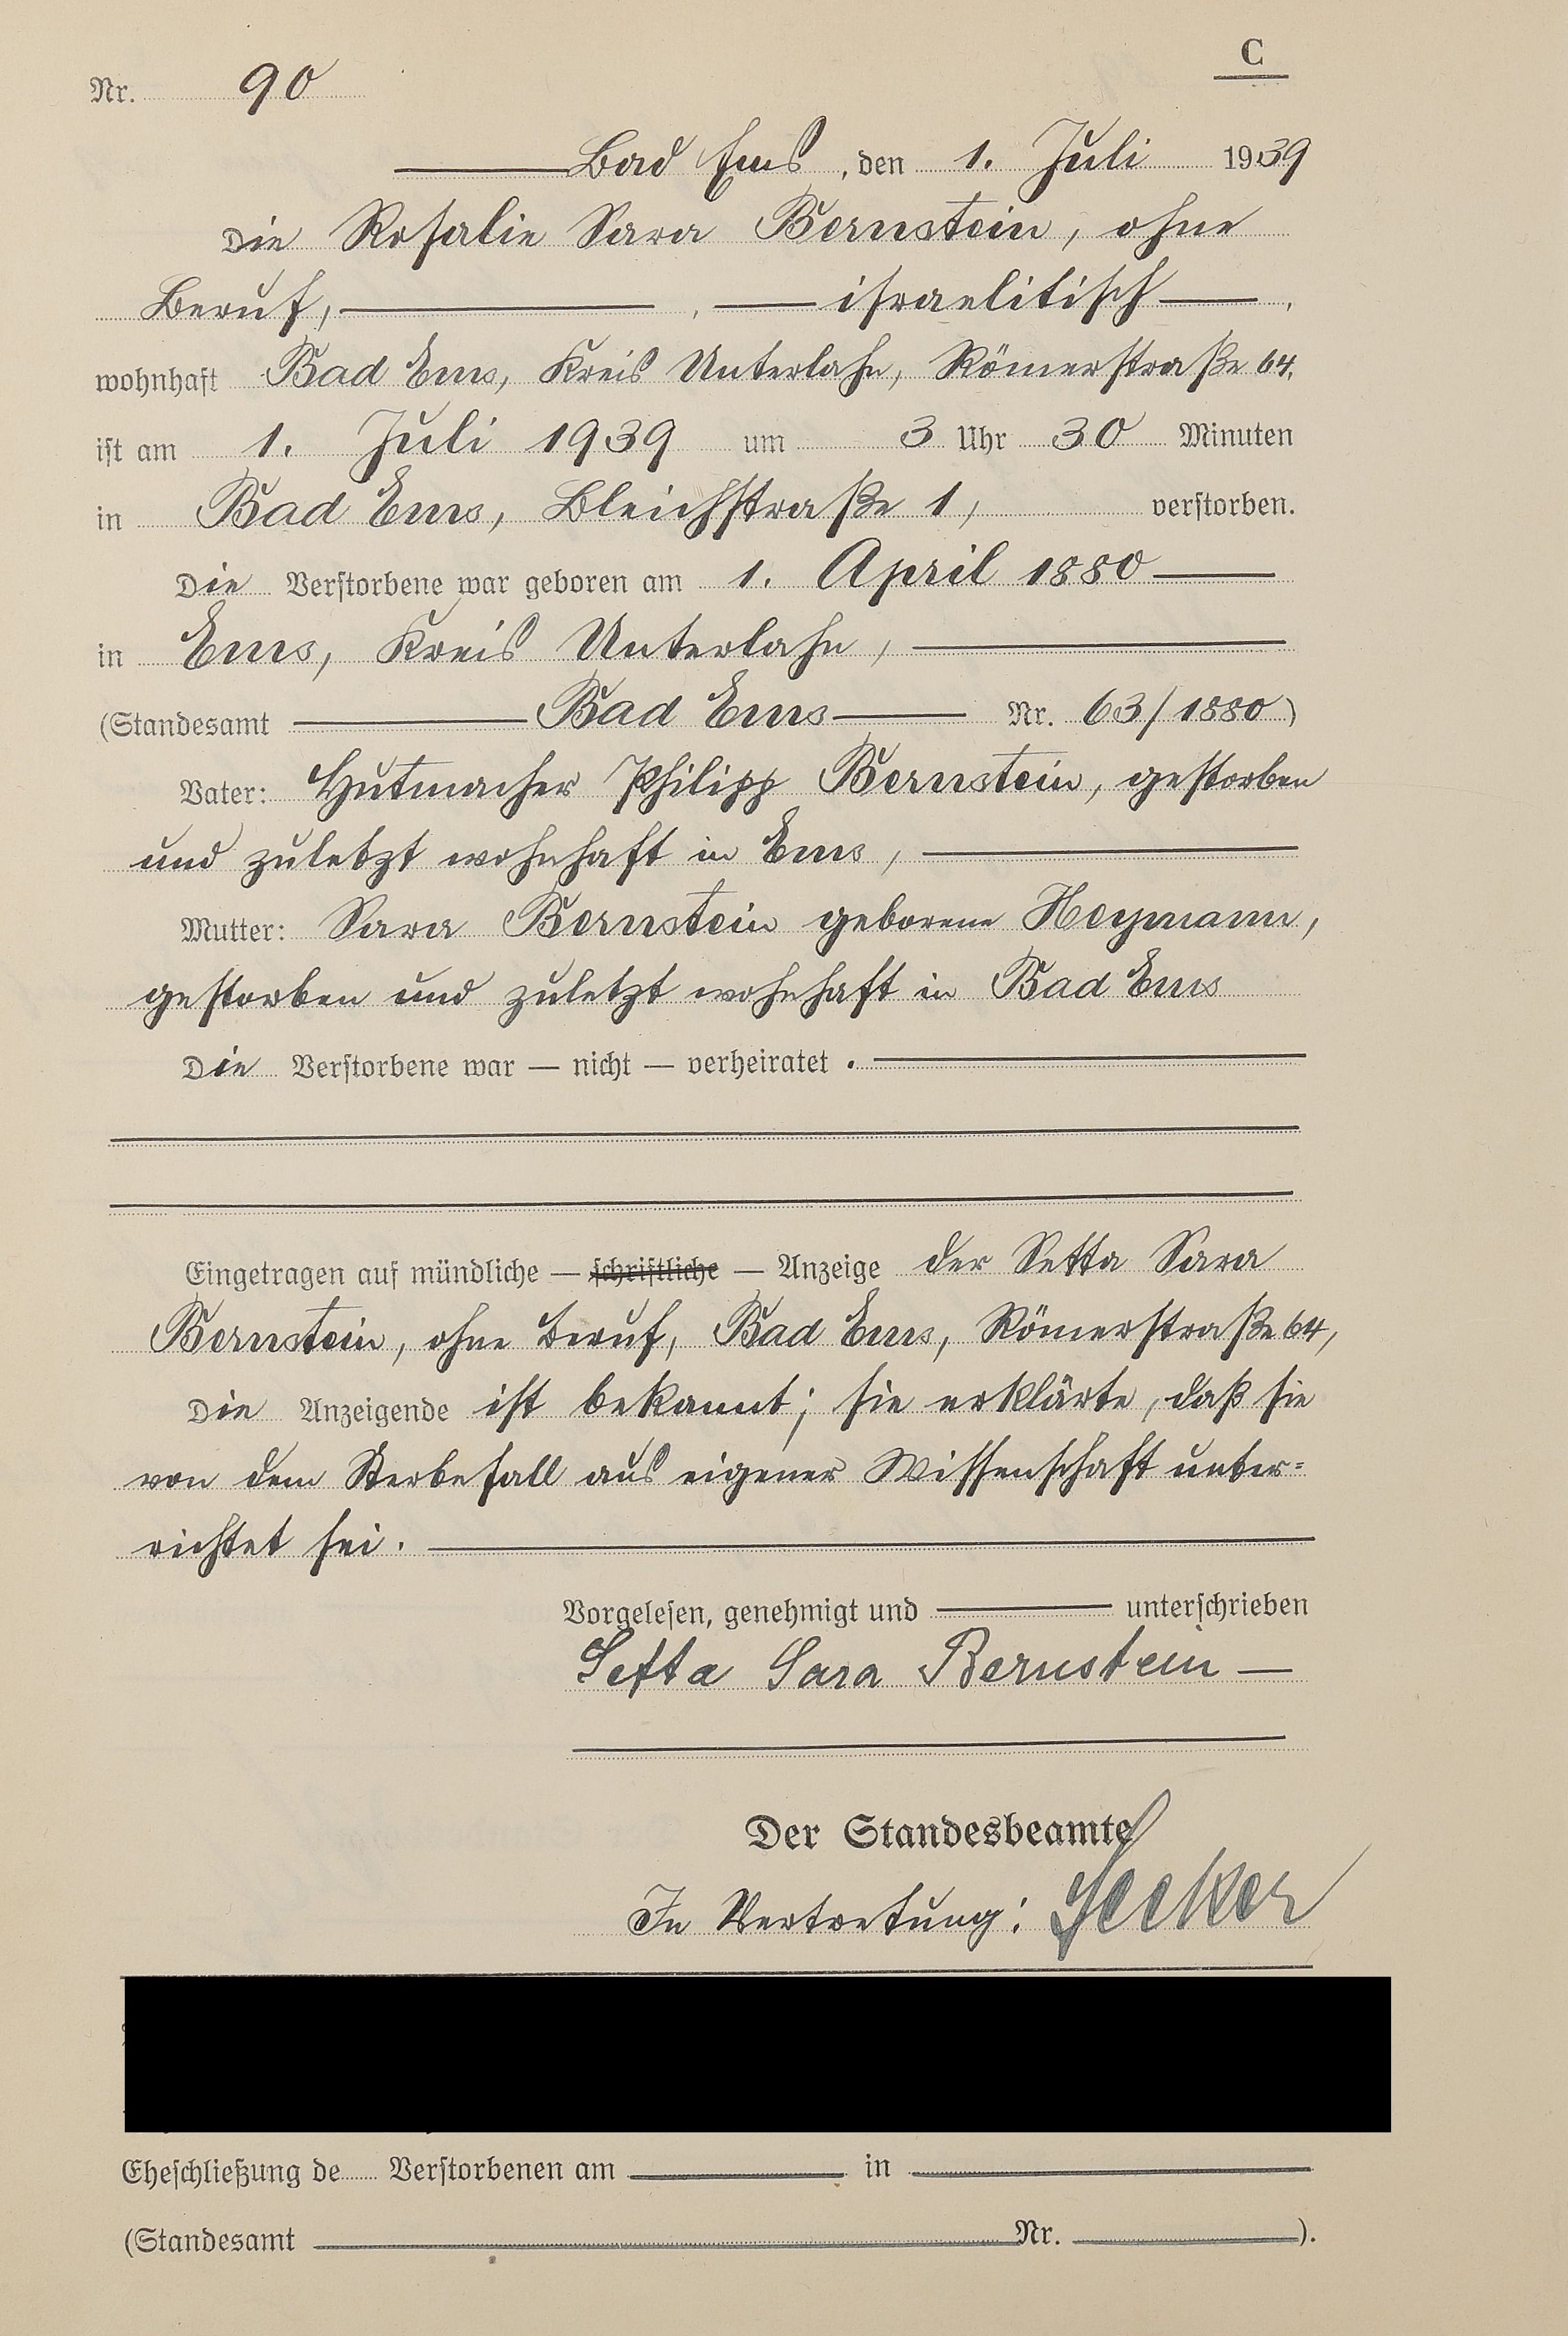 C
Nr. 90
Bad Ems, den 1. Juli 1939
Die Rosalie Sara Bernstein, ohne
Beruf, , israelitisch ,
wohnhaft Bad Ems, Kreis Unterlahn, Römerstraße 64,
ist am 1. Juli 1939 um 3 Uhr 30 Minuten
in Bad Ems, Bleichstraße 1, verstorben.
Die Verstorbene war geboren am 1. April 1880
in Ems, Kreis Unterlahn,
(Standesamt Bad Ems Nr. 63/1880)
Vater: Hutmacher Philipp Bernstein, gestorben
und zuletzt wohnhaft in Ems,
Mutter: Sara Bernstein geborene Heymann,
gestorben und zuletzt wohnhaft in Bad Ems
Die Verstorbene war — nicht — verheiratet.
Eingetragen auf mündliche — schriftliche — Anzeige der Setta Sara
Bernstein, ohne Beruf, Bad Ems, Römerstraße 64,
Die Anzeigende ist bekannt; sie erklärte, daß sie
von dem Sterbefall aus eigener Wissenschaft unter=
richtet sei.
Vorgelesen, genehmigt und unterschrieben
Setta Sara Bernstein
Der Standesbeamte
In Vertretung:
Eheschließung de Verstorbenen am in
(Standesamt Nr. ).